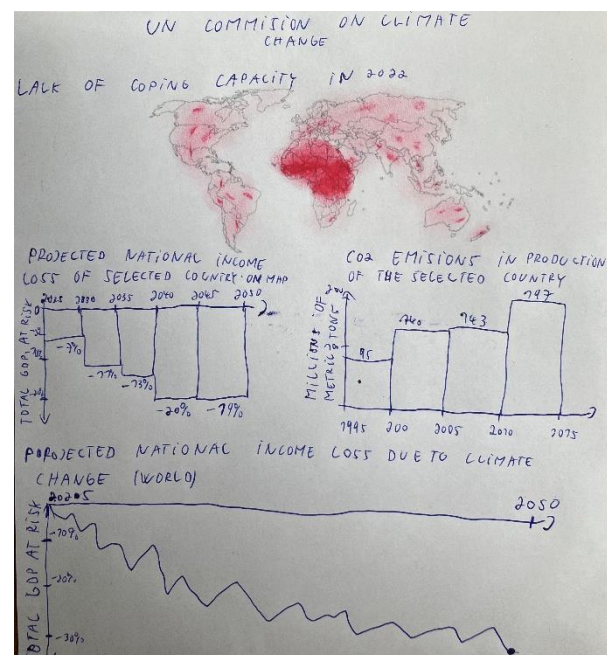 UN COMMISION ON CLIMATE
CHANGE
LACK OF COPING CAPACITY IN 2022
PROJECTED NATIONAL INCOME
LOSS OF SELECTED COUNTRY ON MAP
2025 2030 2035 2040 2045 2050
0
TOTAL GDP AT RISK
-7%
-11%
-13%
-20%
-19%
CO2 EMISIONS IN PRODUCTION
OF THE SELECTED COUNTRY
MILLIONS OF
METRIC TONS
95
140
143
197
1995 200 2005 2010 2015
POROJECTED NATIONAL INCOME LOSS DUE TO CLIMATE
CHANGE (WORLD)
2050
TOTAL GDP AT RISK
-10%
-20%
-30%